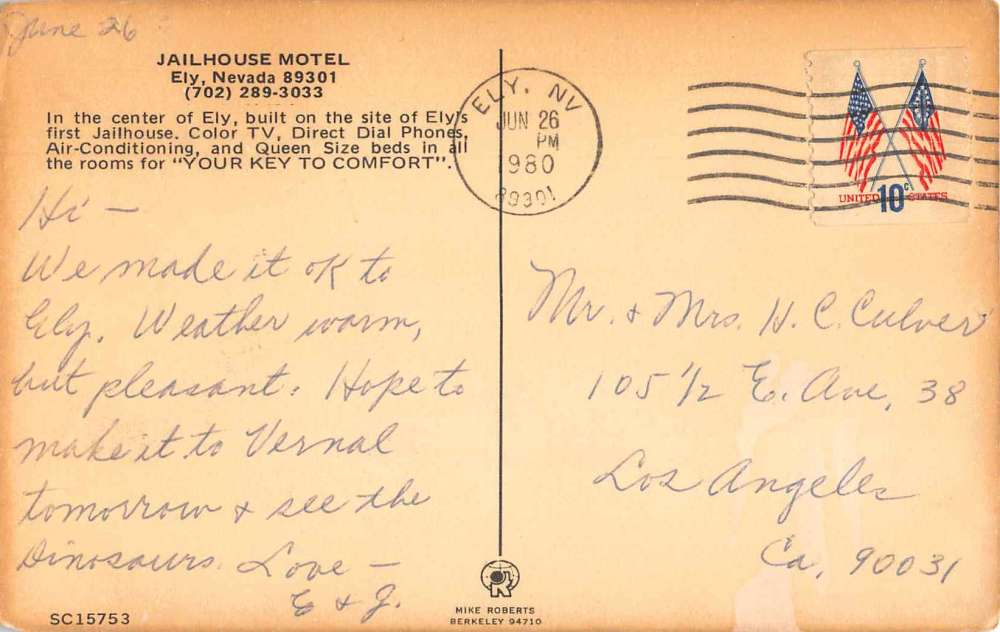 June 26
JAILHOUSE MOTEL
Ely, Nevada 89301
(702) 289-3033
In the center of Ely, built on the site of Ely's
first Jailhouse. Color TV, Direct Dial Phones,
Air-Conditioning, and Queen Size beds in all
the rooms for "YOUR KEY TO COMFORT".
ELY, NV
JUN 26
PM
1980
89301
UNITED 10c STATES
Hi —
We made it OK to
Ely. Weather warm,
but pleasant. Hope to
make it to Vernal
tomorrow & see the
dinosaurs. Love —
E & J.
Mr. & Mrs. H. C. Culver
105 1/2 E. Ave, 38
Los Angeles
Ca, 90031
SC15753
MIKE ROBERTS
BERKELEY 94710